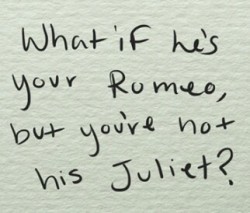 What if he's
your Romeo,
but you're not
his Juliet?